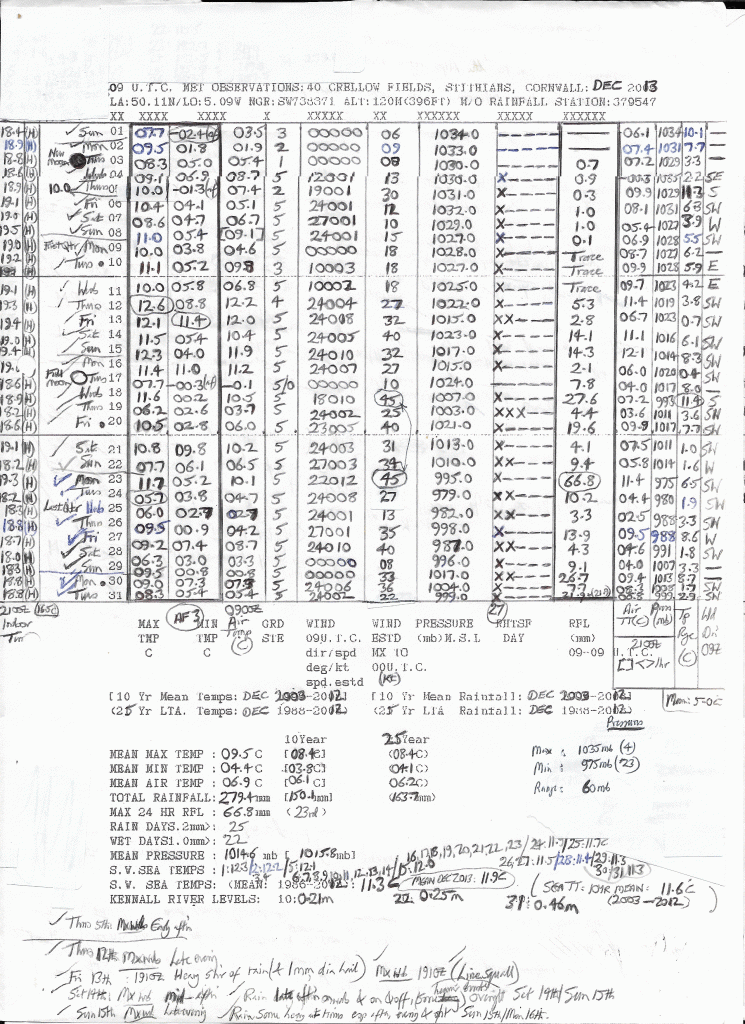 09 U.T.C. MET OBSERVATIONS:40 CRELLOW FIELDS, STITHIANS, CORNWALL: DEC 2013
LA:50.11N/LO:5.09W NGR:SW738371 ALT:120M(396FT) M/O RAINFALL STATION:379547
XX XXXX XXXX X XXXXX XX XXXXXX XXXXX XXXXXX
18.4(H) Sun 01 07.7 03.5 3 00000 06 1034.0 06.1 1034 10.1
18.9(H) Mon 02 09.5 01.8 01.9 2 00000 09 1033.0 07.4 1031 7.7
18.8(H) New moon Tues 03 08.3 05.0 05.4 1 00000 08 1030.0 0.7 07.2 1029 3.3
18.6(H) Wed 04 09.1 06.9 08.7 5 12001 13 1030.0 X 0.9 1035 2.2 SE
18.9(H) 10.0 Thurs 10.0 07.4 2 19001 30 1031.0 X 0.3 09.9 1029 S
19.1(H) Fri 06 10.4 04.1 05.1 5 24001 12 1032.0 X 1.0 08.1 1031 6.3 SW
19.0(H) Sat 07 08.6 04.7 06.7 5 27001 10 1029.0 X 1.0 05.4 1027 3.9 W
19.5(H) Sun 08 11.0 05.4 [09.1] 5 24001 15 1027.0 X 0.1 06.9 1028 5.5 SW
19.0(H) First Qtr Mon 09 10.0 03.8 04.6 5 00000 18 1028.0 X Trace 08.7 1027 6.2
19.2(H) Tues 10 11.1 05.2 5 10003 18 1027.0 X Trace 09.9 1028 5.9 E
19.1(H) Wed 11 10.0 05.8 06.8 5 10002 18 1027.0 X Trace 09.7 1023 4.2 E
19.3(H) Thurs 12 12.6 08.8 12.2 4 24004 27 1022.0 X 5.3 11.4 1019 3.8 SW
19.4(H) Fri 13 12.1 11.4 12.0 5 24008 32 1015.0 XX 2.8 06.7 1023 0.7 SW
Sat 14 11.5 05.4 10.4 5 24005 40 1023.0 X 14.1 11.1 1016 6.1 SW
Sun 15 12.3 04.0 11.9 5 24010 32 1017.0 X 14.3 12.1 1014 8.3 SW
Mon 16 11.4 11.0 11.2 5 24007 27 1015.0 X 2.1 06.0 1020 SW
18.6(H) Full moon Tues 17 07.7 5/0 00000 10 1024.0 7.8 04.0 1017 8.0
18.9(H) Wed 18 11.6 00.2 10.5 5 18010 45 1007.0 X 27.6 07.2 993 11.4 S
18.2(H) Thurs 19 06.2 02.6 03.7 5 24002 25 1003.0 XXX 4.4 03.6 1011 3.6 SW
18.6(H) Fri 20 10.5 02.8 06.0 5 23005 40 1021.0 X 19.6 09.9 1017 7.7 SW
19.1(H) Sat 21 10.8 09.8 10.2 5 24003 31 1013.0 X 4.1 07.5 1011 1.0 SW
18.2(H) Sun 22 07.7 06.1 06.5 5 27003 34 1010.0 XX 9.4 05.8 1014 1.6 W
19.3(H) Mon 23 11.7 05.2 10.1 5 22012 45 995.0 X 66.8 11.4 975 6.5 SW
18.2(H) Tues 24 05.7 03.8 04.7 5 24008 27 979.0 X 10.2 04.4 980 1.9 SW
Last Qtr Wed 25 06.0 5 24001 13 982.0 XX 3.3 02.5 988 3.3 SW
18.8(H) Thurs 26 09.5 00.9 04.2 5 27001 35 998.0 X 13.9 09.5 988 8.6 W
18.7(H) Fri 27 09.2 07.4 08.7 5 24010 40 987.0 XX 4.3 04.6 991 1.8 SW
18.0(H) Sat 28 06.3 03.0 03.3 5 00000 08 996.0 X 9.1 04.0 1007 3.3
Sun 29 09.5 00.8 00.8 5 00000 33 1017.0 X 26.7 09.4 1013 8.7 SW
18.8(H) Mon 30 09.0 07.3 5 24006 36 1004.0 X SW
18.8(H) Tues 31 08.3 05.4 05.4 5 24002 22 999.0 X 999 2.9 SW
2100Z Indoor Tm
MAX TMP C AF3 MIN TMP C 0900Z Air Temp (C) GRD STE WIND 09U.T.C. dir/spd deg/kt spd.estd WIND ESTD MX TO 00U.T.C. (Kt) PRESSURE (mb)M.S.L 27 DAY RFL (mm) 09-09 U.T.C.
Air TT(C) Press (mb) 2100Z [ ]</>/hr (C) Wd Dir 09Z
[10 Yr Mean Temps: DEC 2003-2012] [10 Yr Mean Rainfall: DEC 2003-2012]
(25 Yr LTA. Temps: DEC 1988-2012) (25 Yr LTA Rainfall: DEC 1988-2012) Mean: 5.0C
10Year 25Year Pressure
MEAN MAX TEMP : 09.5 C [08.4C] (08.4C) Max : 1035mb (4)
MEAN MIN TEMP : 04.4 C [03.8C] (04.1C) Min : 975mb (23)
MEAN AIR TEMP : 06.9 C [06.1C] (06.2C) Range: 60mb
TOTAL RAINFALL: 279.4mm [150.1mm] (163.7mm)
MAX 24 HR RFL : 66.8mm (23rd)
RAIN DAYS.2mm>: 25
WET DAYS1.0mm>: 22
MEAN PRESSURE : 1014.6 mb [1015.8mb] 16,17,18,19,20,21,22,23/24:11.7/25:11.7C
S.W.SEA TEMPS : 1:12.3/2:12.2/5:12.1 6,7,8,9,10,11,12,13,14/15:12.0 26,27:11.5/28:11.4/29:11.3 30/31:11.3
S.W. SEA TEMPS: (MEAN: 1986-2012: 11.3C MEAN DEC 2013: 11.9C (SEA TT: 10YR MEAN: 11.6C
KENNALL RIVER LEVELS: 10:0.21m 22: 0.25m 31: 0.46m (2003-2012))
Thurs 5th: Mx wd Early aftn
Thurs 12th Mx wd Late evening
Fri 13th: 1910Z Heavy shwr of rain (& 1mm dia hail) Mx wd 1910Z (Line squall)
Sat 14th: Mx wd mid-aftn Rain late aftn onwards & on & off, overnight Sat 14th/Sun 15th
Sun 15th Mx wd Late evening Rain Some heavy at times esp after evening & nght Sun 15th/Mon 16th.